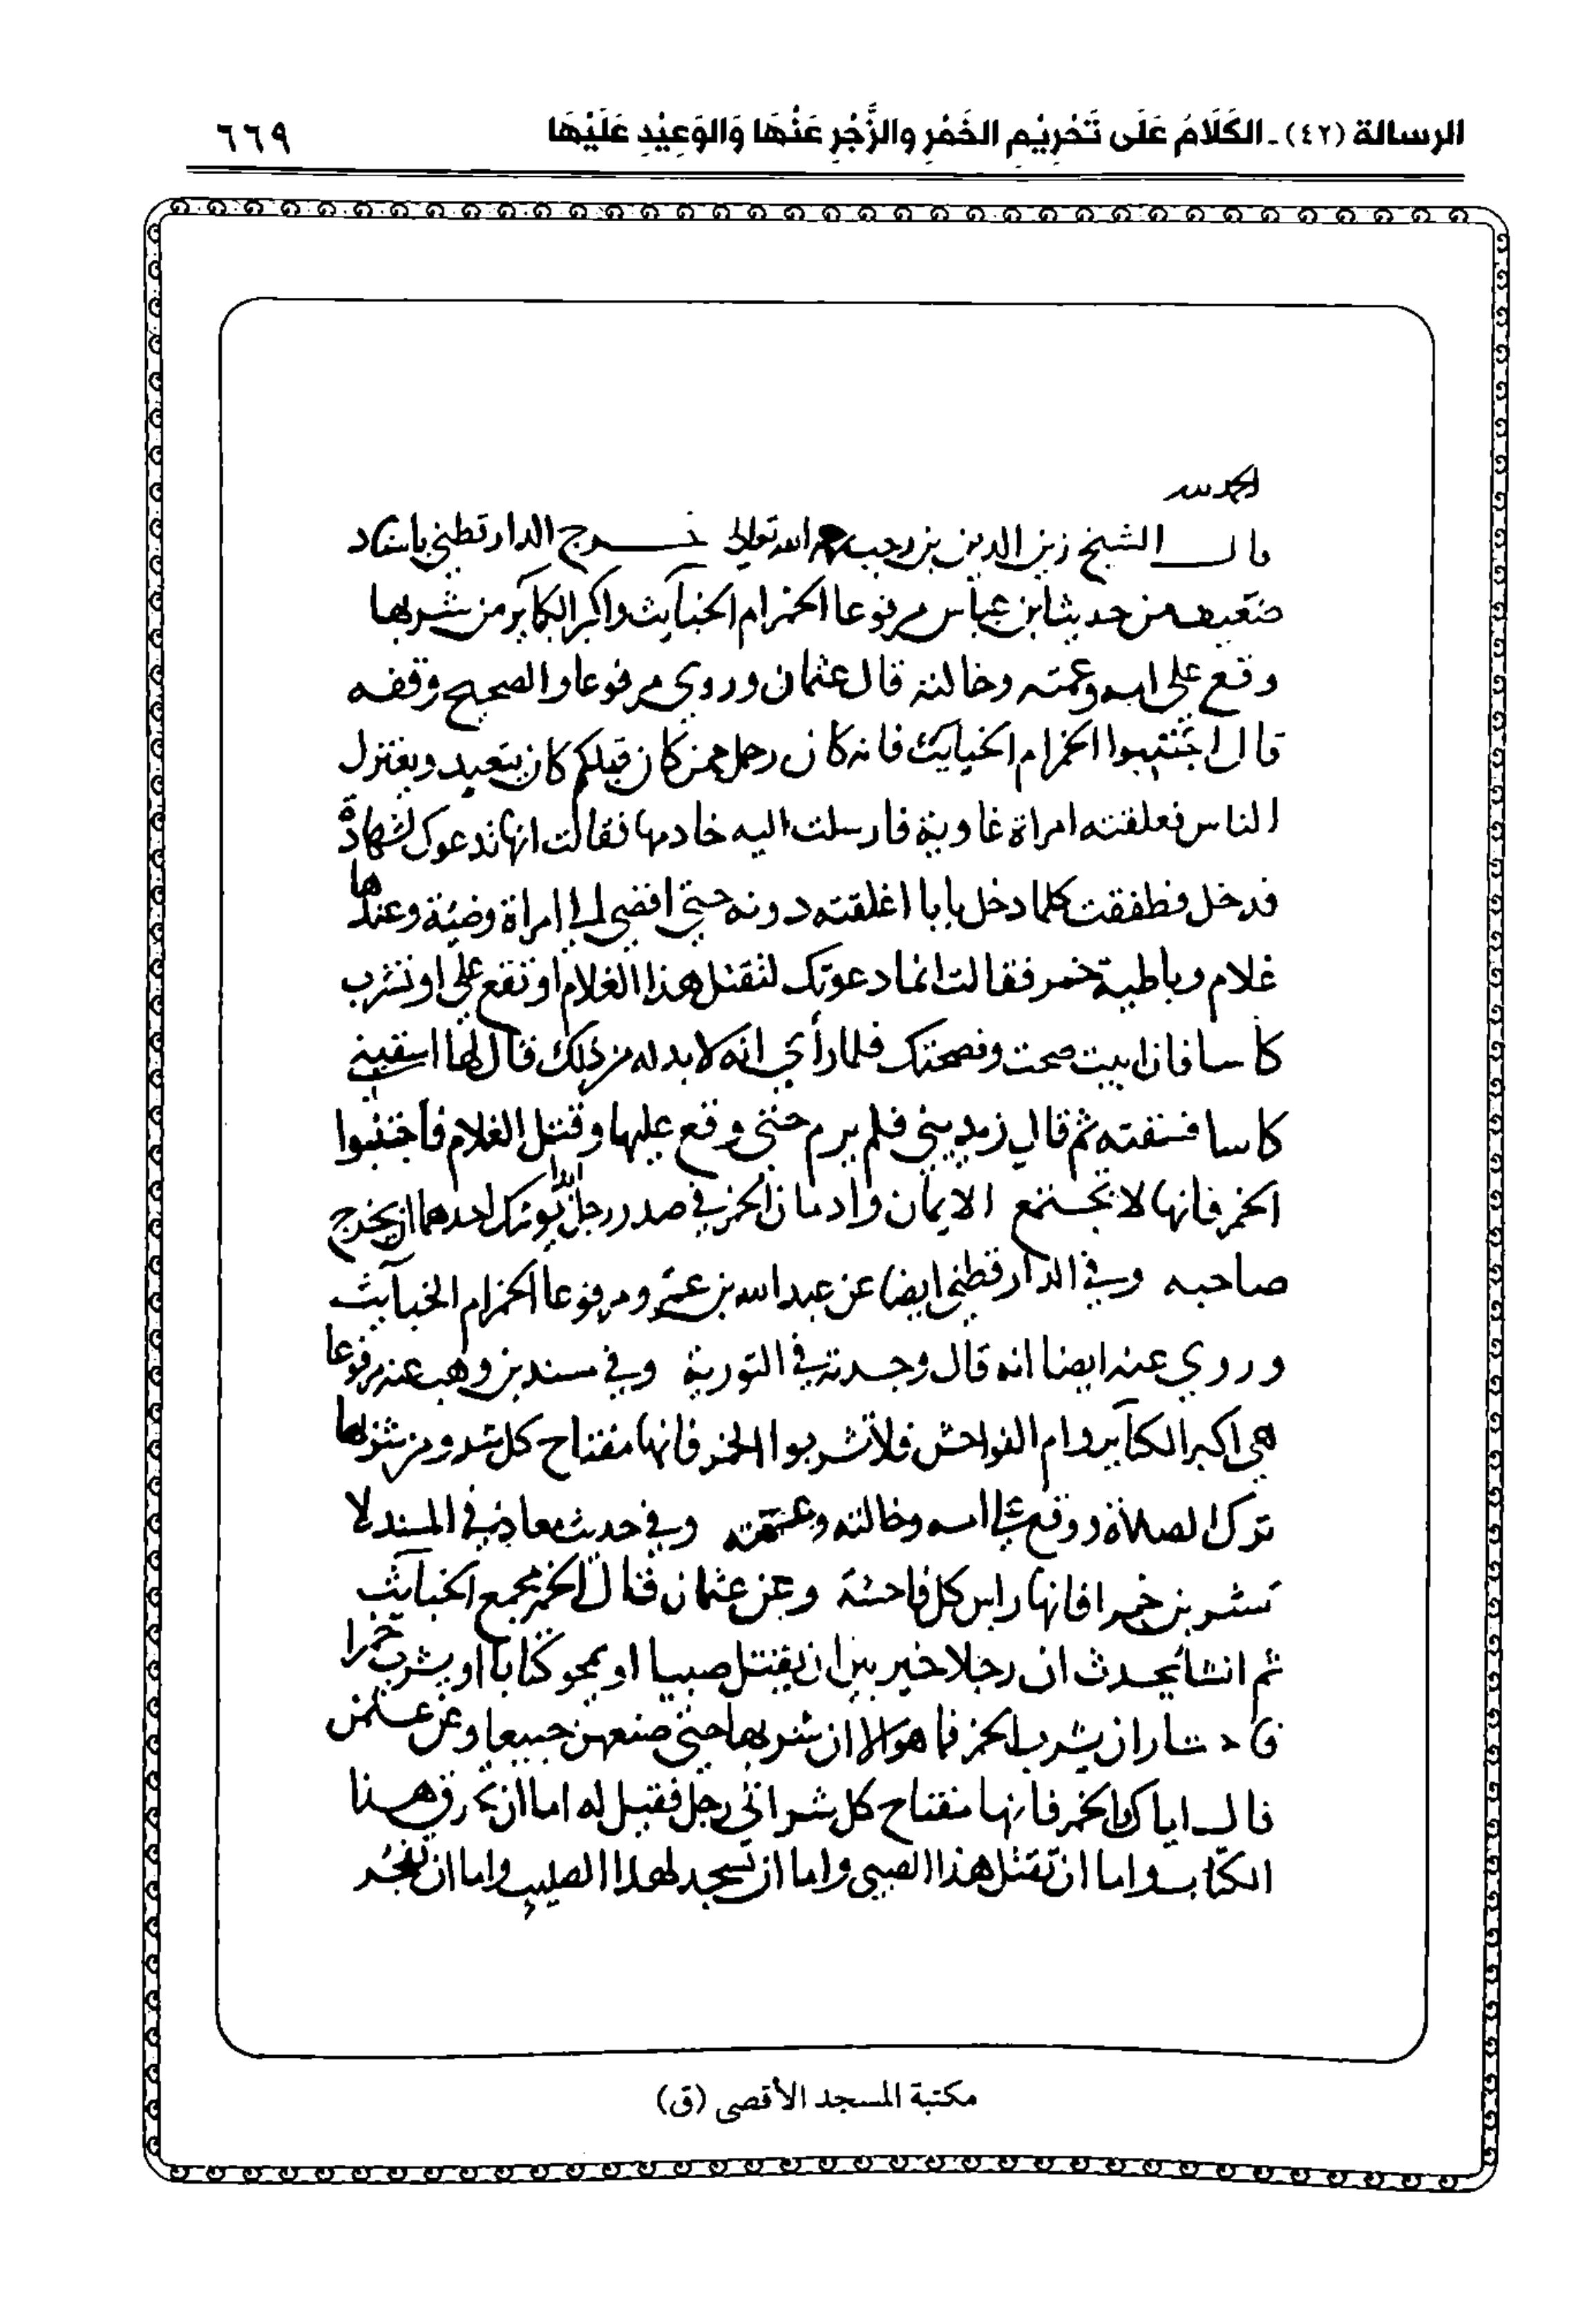 الرسالة (٤٢) ـ الكَلَامُ عَلَى تَحْرِيْمِ الخَمْرِ والزَّجْرِ عَنْهَا وَالوَعِيْدِ عَلَيْهَا ٦٦٩
الحمد لله
قال الشيخ زين الدين بن رجب رحمه الله تعالى خرج الدارقطني باسناد
ضعيف من حديث ابن عباس مرفوعا الخمر ام الخبآيث واكبر الكبآير من شربها
وقع على امه وعمته وخالته قال عثمان وروي مرفوعا والصحيح وقفه
قال اجتنبوا الخمر ام الخبآيث فانه كان رجل ممن كان قبلكم كان يتعبد ويعتزل
الناس فعلقته امراة غاوية فارسلت اليه خادمها فقالت انها تدعوك لشهادة
فدخل فطفقت كلما دخل بابا اغلقته دونه حتى افضى الى امراة وضئة وعندها
غلام وباطية خمر فقالت انما دعوتك لتقتل هذا الغلام او تقع علي او تشرب
كاسا فان ابيت صحت وفضحتك فلما رأي انه لا بد له من ذلك قال لها اسقيني
كاسا فسقته ثم قال زيديني فلم يرم حتى وقع عليها وقتل الغلام فاجتنبوا
الخمر فانها لا تجتمع الايمان وادمان الخمر في صدر رجل ابدا يوشك احدهما ان يخرج
صاحبه وفي الدارقطني ايضا عن عبد الله بن عمرو مرفوعا الخمر ام الخبآيث
وروي عنه ايضا انه قال وجدته في التورية وفي مسند بن وهب عنه مرفوعا
هي اكبر الكبآير وام الفواحش فلا تشربوا الخمر فانها مفتاح كل شر ومن شربها
ترك الصلاة ووقع على امه وخالته وعمته وفي حديث معاذ في المسند لا
تشربن خمرا فانها راس كل فاحشة وعن عثمان قال الخمر مجمع الخبآيث
ثم انشا يحدث ان رجلا خير بين ان يقتل صبيا او يمحو كتابا او يشرب خمرا
فاختار ان يشرب الخمر فما هو الا ان شربها حتى صنعهن جميعا وعن
قال اياك والخمر فانها مفتاح كل شر اتي رجل فقيل له اما ان تحرق هذا
الكتاب واما ان تقتل هذا الصبي واما ان تسجد لهذا الصليب واما ان تفجر
مكتبة المسجد الأقصى (ق)